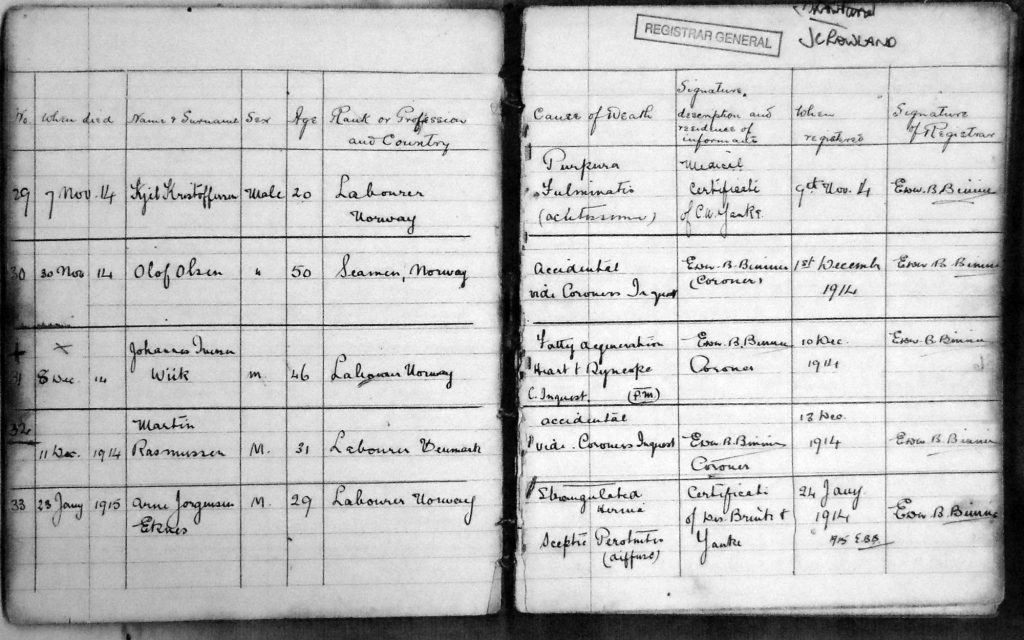 REGISTRAR GENERAL
J C ROWLAND
No. When died Name & Surname Sex Age Rank or Profession and Country
Cause of Death Signature, description and residence of informant When registered Signature of Registrar
29 7 Nov. 14 Kjil Kristoffersen Male 20 Labourer
Norway
Purpura Medical
Fulminatis Certificate 9th Nov. 14 Edw. B. Binnie
of C.W. Yanke.
30 30 Nov 14 Olof Olsen " 50 Seaman, Norway
Accidental Edw. B. Binnie 1st December Edw. B. Binnie
vide Coroners Inquest (Coroner) 1914
+ x Johannes Iversen
8 Dec. 14 Wiik m. 46 Labourer Norway
Fatty degeneration Edw. B. Binnie 10 Dec. Edw. B. Binnie
Heart & Syncope Coroner 1914
C. Inquest. (P.M.)
32 Martin
11 Dec. 1914 Rasmussen M. 31 Labourer Denmark
accidental 13 Dec.
vide Coroners Inquest Edw. B. Binnie 1914 Edw. B. Binnie
Coroner
33 23 Jany 1915 Arne Jorgensen M. 29 Labourer Norway
Eknes
Strangulated Certificate 24 Jany
Hernia of Drs. & 1914 Edw. B. Binnie
Sceptic Perotnitis Yanke 1915 E.B.B.
(diffuse)